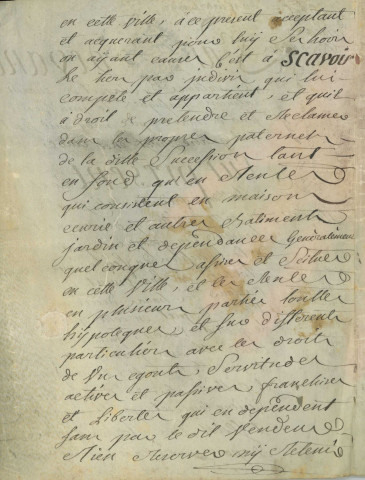 en cette ville, à ce present acceptant
et acquerant pour luy ses hoirs
ou ayant cause c'est à SCAVOIR
Le tiers par indivis qui lui
compete et appartient, et qu'il
à droit de pretendre et Reclamer
dans les propres paternels
de la ditte Succession tant
en fond que en Rentes
qui consistent en maison
ecurie et autres Batiments
jardin et dependances Generalement
quelconques assises et Scitues
en cette ville, et les Rentes
en plusieurs parties toutes
hypoteques, et sur differents
particuliers avec les droits
de egouts, Servitudes
actives et passives, franchises
et Libertes qui en dependent
sans par le dit vendeur
Rien Reserver ny Retenir